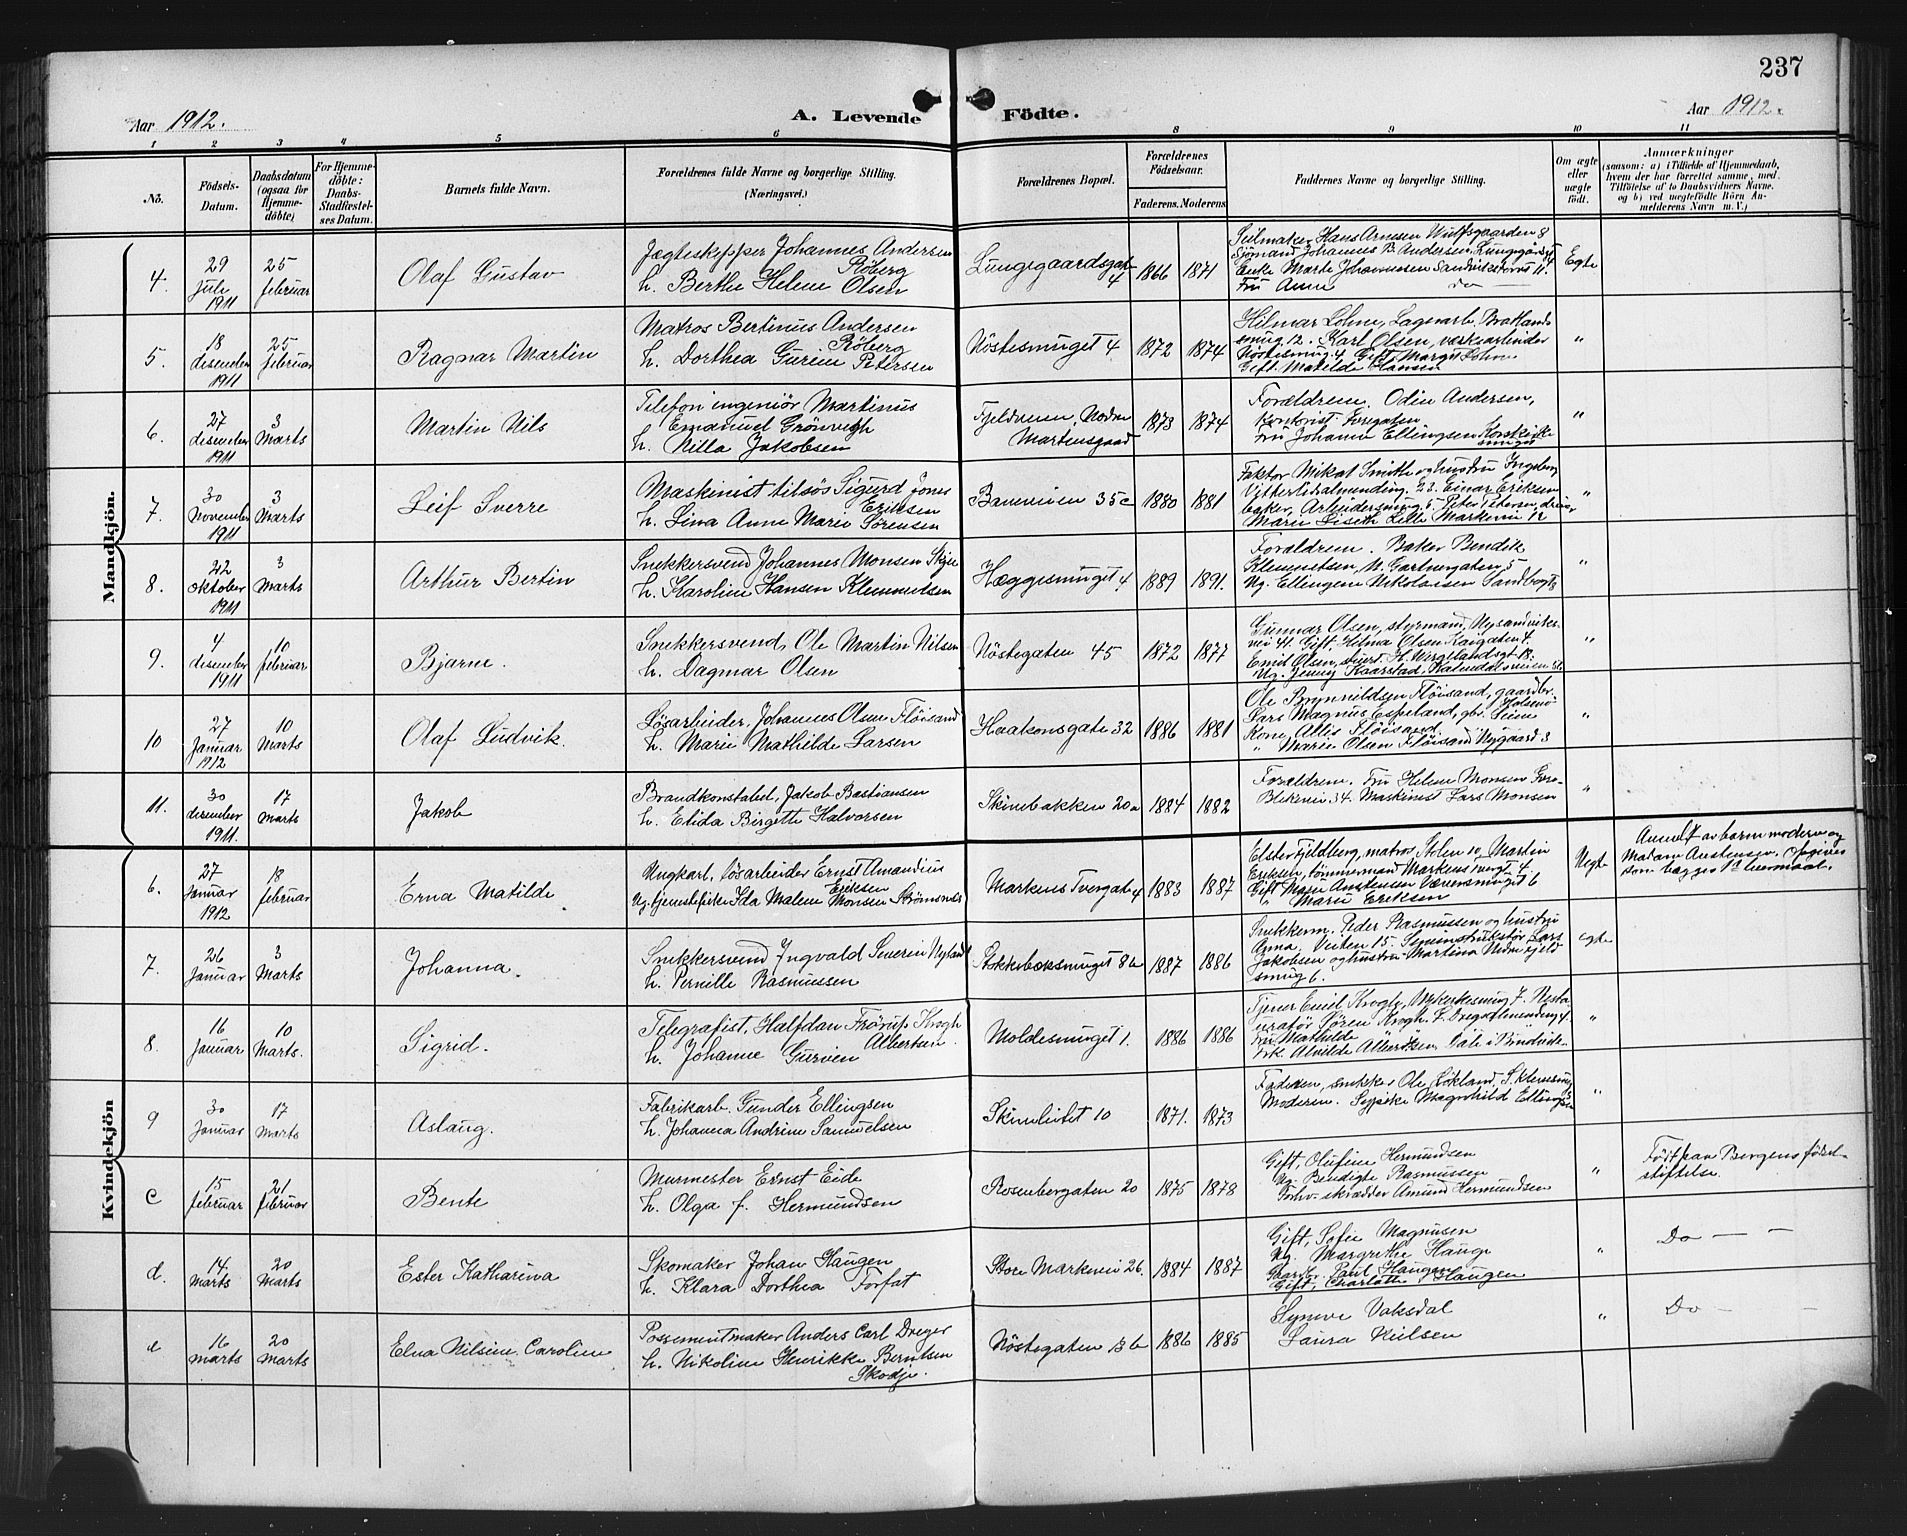 237
Aar 1912.
A. Levende Födte.
Aar 1912.
1 2 3 4 5 6 8 9 10 11
No.
Födsels-Datum.
Daabsdatum (ogsaa for Hjemme-döbte)
For Hjemme-döbte: Daabs-Stadfæstel-ses Datum.
Barnets fulde Navn.
Forældrenes fulde Navne og borgerlige Stilling. (Næringsvei.)
Forældrenes Bopæl.
Forældrenes Födselsaar.
Faderens. Moderens.
Faddernes Navne og borgerlige Stilling.
Om ægte eller uægte födt.
Anmærkninger
(saasom: a) i Tilfælde af Hjemmedaab, hvem der har forrettet samme, med Tilföielse af to Daabsvidners Navne, og b) ved uegtefödte Börn An-melderens Navn m. V.)
Mandkjön.
4. 29 Juli 1911 25 februar Olaf Gustav
Jægteskipper Johannes Andersen Röberg
h. Berthe Helene Olsen
Lungegaardsgate 4 1866 1871
Seilmaker Hans Arnesen Wulfsgaarden 8
Sjömand Johannes B. Andersen, Lungegårdsg 4
Enke Marte Johannessen Sandvikstorvet 11.
Fru Anne do —
Egte
5. 18 desember 1911 25 februar Ragnar Martin
Matros Bertinus Andersen Röberg
h. Dorthea Gurine Petersen
Nöstesmuget 4 1872 1874
Hilmar Lohne, Lagerarb. Bratlands-
smug 12. Karl Olsen, værksarbeider
Nöstesmug 4. Gift Margit Lohne
Gift. Matilde Hansen
"
6. 27 desember 1911 3 Marts Martin Nils
Telefoningeniör Martinus
Emanuel Grönvigh
h. Nilla Jakobsen
Fjeldveien, Nedre Martensgaard 1873 1874
Forældrene. Odin Andersen,
kontorist Foregaten
Fru Johanne Ellingsen Korskirke
smuget
"
7. 30 November 1911 3 Marts Leif Sverre
Maskinist tilsös Sigurd Jones Eriksen
h. Lina Anne Marie Sörensen
Baneveien 35c 1880 1881
Faktor Mikal Smith og hustru Ingeborg
Vitterlidalmending 23. Einar Eriksen
baker, Arbeidersmug 5. Peter Petersen, dreier
Marie Liseth Lille Markevei 12
"
8. 22 Oktober 1911 3 Marts Arthur Bertin
Snekkersvend Johannes Monsen Skjie
h. Karoline Hansen Klemmetsen
Hæggesmuget 4 1889 1891.
Forældrene. Baker Bendik
Klemmetsen, N. Gartnergaten 5
Ug. Ellingene Nikolaisen Sandbogt 8
"
9. 4 desember 1911 10 februar Bjarne.
Snekkersvend, Ole Martin Nilsen
h. Dagmar Olsen
Nöstegaten 45 1872 1877
Gunnar Olsen, styrmand, Nysandviks-
vei 41. Gift, Helma Olsen Kaigaten 4.
Emil Olsen, stuert. H. Wergelandsgt 13.
Ug. Jenny Kaarstad, Kalvedalsveien 56
"
10 27 Januar 1912 10 Marts Olaf Ludvik.
Lösarbeider, Johannes Olsen Flöisand
h. Marie Mathilde Larsen
Haakonsgate 32 1886 1881
Ole Brynnildsen Flöisand, gaardbr.
Lars Magnus Espeland, gbr. Holsenö
Kone, Allis Flöisand. Seim
" Marie Olsen Flöisand Nygaard 3
"
11. 30 desember 1911. 17 Marts Jakob
Brandkonstabel, Jakob Bastiansen
h. Elida Birgette Halvorsen
Skivebakken 20a 1884 1882
Forældrene. Fru Helene Monsen Store-
Blekevei 34. Maskinist Lars Monsen
"
Kvindekjön
6. 27 Januar 1912 18 februar Erna Matilde
Ungkarl, Lösarbeider Ernst Amandius Eriksen
Ug. tjenestepike Ida Malene Monsen Strömsnes
Markens Tvergate 4 1883 1887
Elster Fjeldberg, matros Stolen 10, Martin
Eriksen, tömmermand Markens tverg. 4
Gift Maren Anstensen Væversmuget 6
" Marie Eriksen
Uegte
Anmeldt av barnemoderen og
Madam Anstensen. Opgives
som begges 1ste leiermaal.
7. 26 Januar 3 Marts Johanna.
Snekkersvend Ingvald Severin Nyland
h. Pernille Rasmussen
Stokkeboksmuget 8b 1887 1886
Snekkerm. Peder Rasmussen og hustru
Anna. Veiten 15. Seminstruktör Lars
Jakobsen og hustru Martina Nedre fjeld
smug 6.
egte
8. 16 Januar 10 Marts. Sigrid.
Telegrafist, Halfdan Frörup Krogh
h. Johanne Gurine Albertsen.
Moldesmuget 1. 1886 1886
Tjener Emil Krogh, Nykirkesmug 7. Resta
uratör Sören Krogh. L. Dregsalmending 4.
Fru Mathilde "
Frk. Alvilde Albertsen, Dale i Bruvik.
"
9 30 Januar 17 Marts Aslaug.
Fabrikarb. Gunder Ellingsen
h. Johanna Andrine Samuelsen
Skivebutet 10 1871. 1873
Faderen, snekker Ole Lökland, S. Klevesmug
Moderen. Sypike Magnhild Ellingsen
"
c 15 februar 21 februar Bente
Murmester Ernst Eide
h. Olga f. Hermundsen
Rosenbergaten 20 1875 1878
Gift, Olufine Hermundsen
Ug. Bendigte Rasmussen
Forhv. skrædder Amund Hermundsen
"
Födt paa Bergens födsels-
stiftelse.
d. 14. Marts 20 Marts Ester Katharina
Skomaker Johan Haugen
h. Klara Dorthea Torfat
Store Markevei 26. 1884 1887
Gift, Sofie Magnusen
Ug. Margrethe Hauge
Gaardbr. Paul Haugen
Gift, Charlotte Haugen
"
Do — —
e 16 Marts 20 Marts Elna Nilsine Caroline
Possementmaker Anders Carl Dreyer
h. Nikoline Henrikke Berntsen
Skodje.
Nöstegaten 36 1886 1885
Synnve Vaksdal
Laura Nielsen
"
Do — —